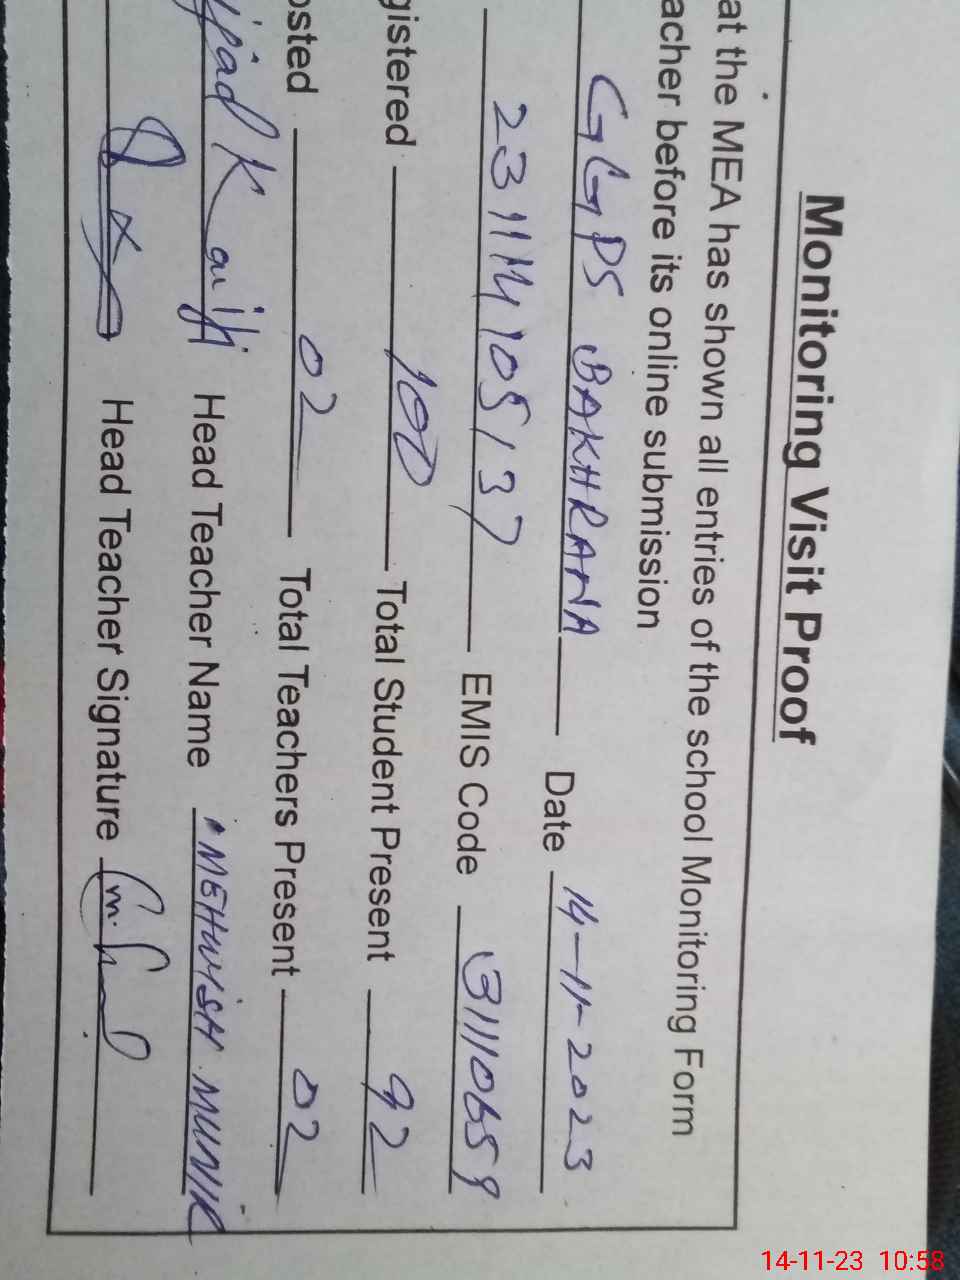 Monitoring Visit Proof
at the MEA has shown all entries of the school Monitoring Form
acher before its online submission
GGPS BAKHRANA Date 14-11-2023
EMIS Code
gistered 100 Total Student Present 92
osted 02 Total Teachers Present 02
Head Teacher Name MEHWISH MUNIR
Head Teacher Signature
14-11-23 10:58